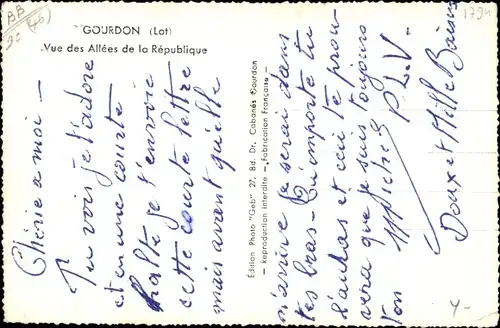 GOURDON (Lot)
Vue des Allées de la République
Chérie a moi –
Tu vois je t'adore
et en une courte
halte je t'envoie
cette courte lettre
mais avant qu'elle
m'arrive je serai dans
tes bras – Qu'importe tu
l'auras et ceci te prou-
vera que je suis toujours
Ton Michel P.L.V.
Doux et Mille Baisers
Édition Photo "Geb" 27, Bd. Dr. Cabanès Gourdon
— Reproduction interdite — Fabrication Française —
BB
1794